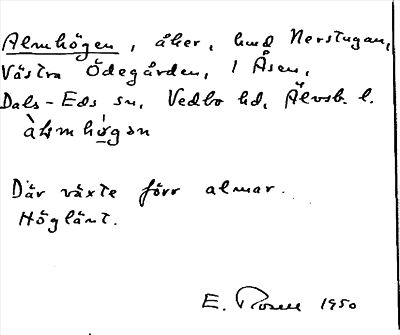 Almhögen, åker, hmd Nerstugan,
Västra Ödegården, 1 Åsen,
Dals-Eds sn, Vedbo hd, Älvsb. l.
àlmhø̀gən
Där växte förr almar.
Höglänt.
E. Rosell 1950